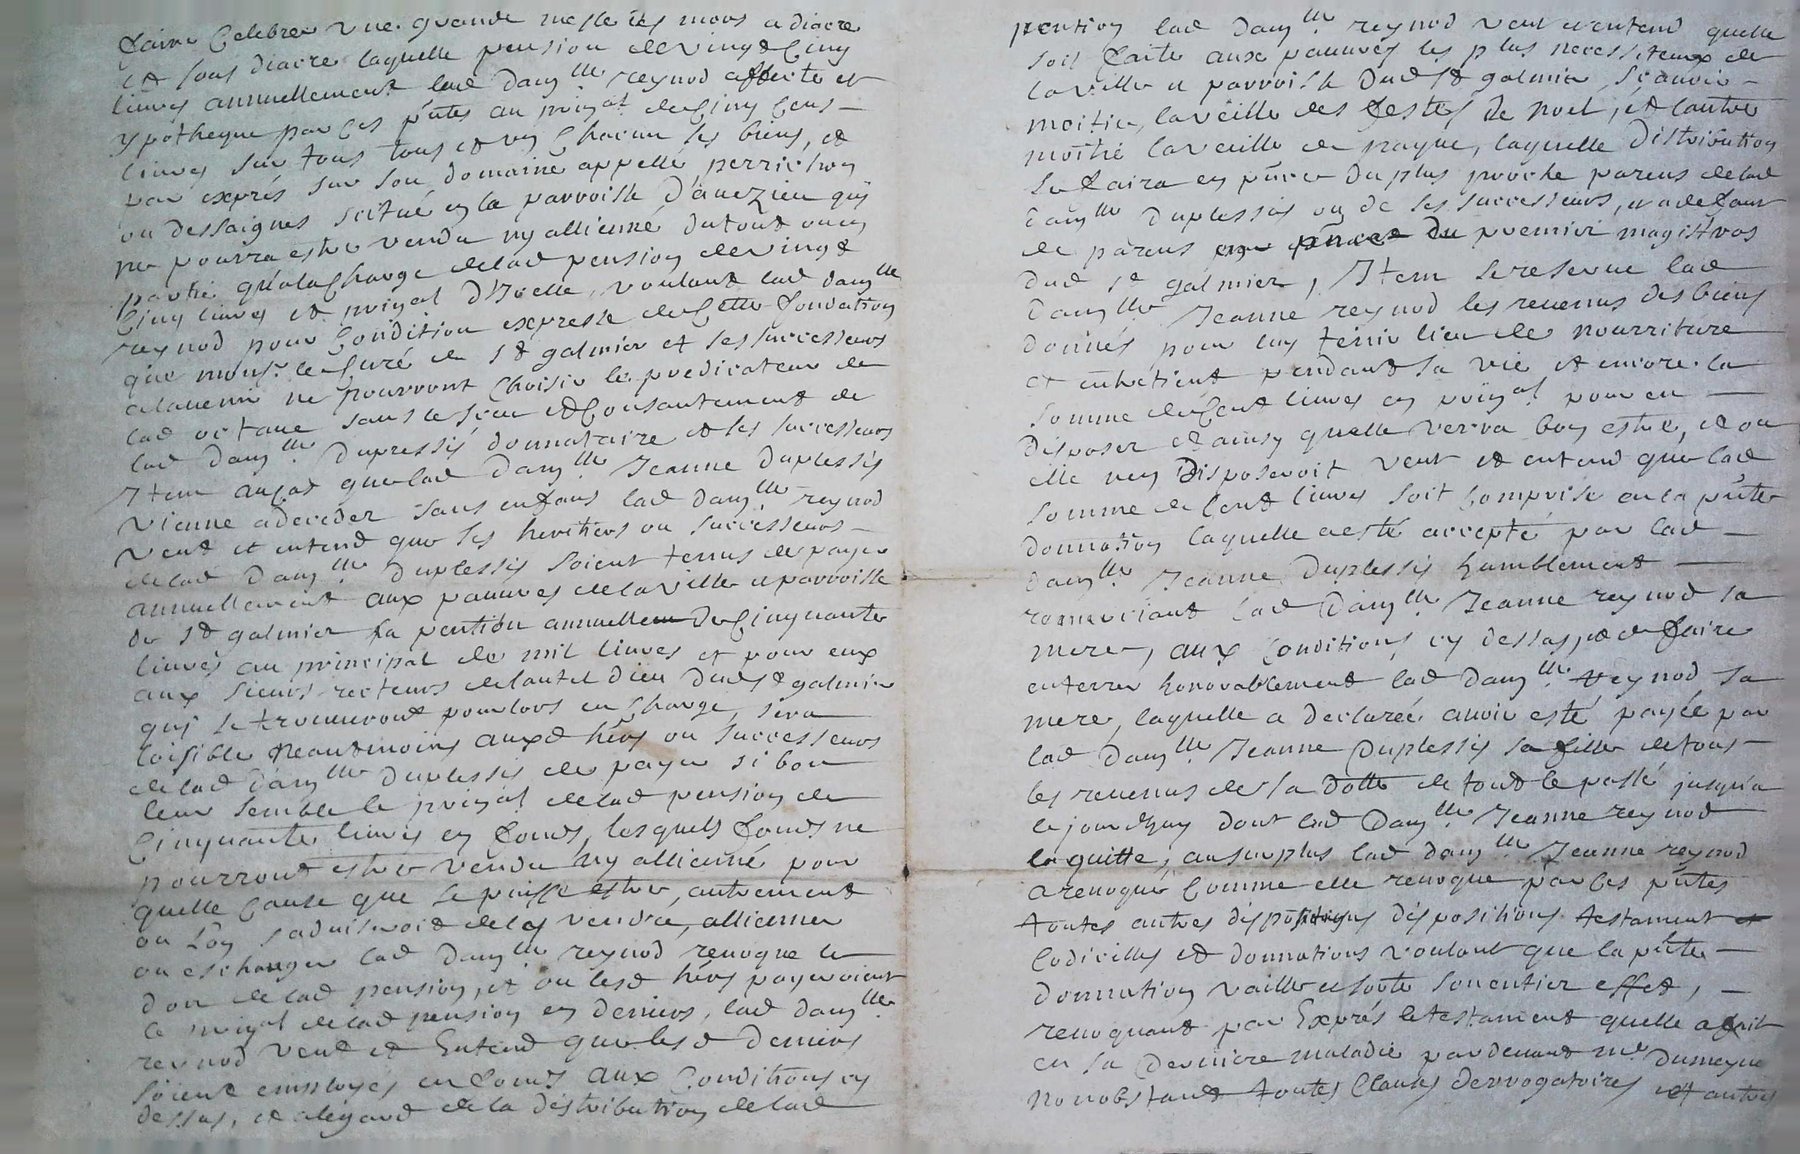 faire Celebrer une grande messe les mois a diacre
et sous diacre laquelle pension de vingt Cinq
liures annuellement lad dam^lle reynod affecte et
ypotheque par Ces p̃ntes au prin̄al de Cinq Cens -
liures sur tous tous et un Chacun ses biens, et
par exprés sur son domaine appellé perrichon
ou dessaignes scitué en la parroisse d'auezieu quy
ne pourra estre vendu ny allienné du tout ou en
partie qu'ala Charge delad pension de vingt
Cinq liures et prin̄al d'Icelle, voulant lad dam^lle
reynod pour Condition expresse de Cette fondation
que mons^r le Curé de S^t galmier et ses successeurs
alauenir ne pourront Choisir le predicateur de
lad octaue sans le sceu et Consantement de
lad dam^lle Dupressis donnataire et ses successeurs
Item au Cas que lad dam^lle Jeanne duplessis
vienne a deceder sans enfans lad dam^lle reynod
veut et entend que ses heritiers ou successeurs -
delad dam^lle duplessis soient tenus de payer
annuellement aux pauures de la ville et parroisse
de S^t galmier la pention annuelle de Cinquante
liures au principal de mil liures et pour eux
aux sieurs recteurs de lautel dieu dud S^t galmier
quy se trouueront pour lors en Charge, sera
loisible neantmoins auxd hers ou successeurs
delad dam^lle duplessis de payer si bon
leur semble le prin̄al delad pension de
Cinquante liures en fonds, lesquels fonds ne
pourront estre vendu ny allienné pour
quelle Cause que se puisse estre, autrement
ou l'on s'aduiseroit de les vendre, allienner
ou eschanger lad dam^lle reynod reuoque le
don delad pension, et ou lesd hers payeroient
le prin̄al delad pension en deniers, lad dam^lle
reynod veut et Entend que lesd deniers
soient employés en fonds aux Conditions cy
dessus, et alégard de la distribution delad
pention lad dam^lle reynod veut et entend quelle
soit faite aux pauures les plus necessiteux de
la ville et parroisse dud S^t galmier, scauoir -
moitie, la veille des festes de noel, et l'autre
moitié la veille de paque, laquelle distribution
se faira en p̃nce du plus proche parens delad
dam^lle duplessis ou de ses successeurs, et a defaut
de parens en p̃nce du premier magistras
dud S^t galmier, Item se reserue lad
dam^lle Jeanne reynod les reuenus des biens
donnés pour luy tenir lieu de nourriture
et entretient pendant sa vie et encore la
somme de Cent liures en prin̄al pour en -
disposer et ainsy quelle verra bon estre, et ou
elle n'en disposeroit veut et entend que lad
somme de Cent liures soit Comprise en la p̃nte
donnation laquelle a esté accepté par lad -
dam^lle Jeanne Duplessis humblement -
remerciant lad dam^lle Jeanne reynod sa
mere, aux Conditions cy dessus, et de faire
enterrer honorablement lad dam^lle reynod sa
mere, laquelle a declarée auoir esté payée par
lad dam^lle Jeanne Duplessis sa fille de tous
les reuenus de sa dotte de tout le passé jusqu'a
le jourdhuy dont lad Dam^lle Jeanne reynod
la quitte, au surplus lad dam^lle Jeanne reynod
a reuoqué Comme elle reuoque par Ces p̃ntes
toutes autres dispositions testament et
Codicilles et donnations voulant que la p̃nte -
donnation vaille et sorte son entier effet, -
reuoquant par Exprés le testament quelle a fait
en sa derniere maladie pardeuant m^e Dumeyne
nonobstant toutes Clauses derrogatoires et autres